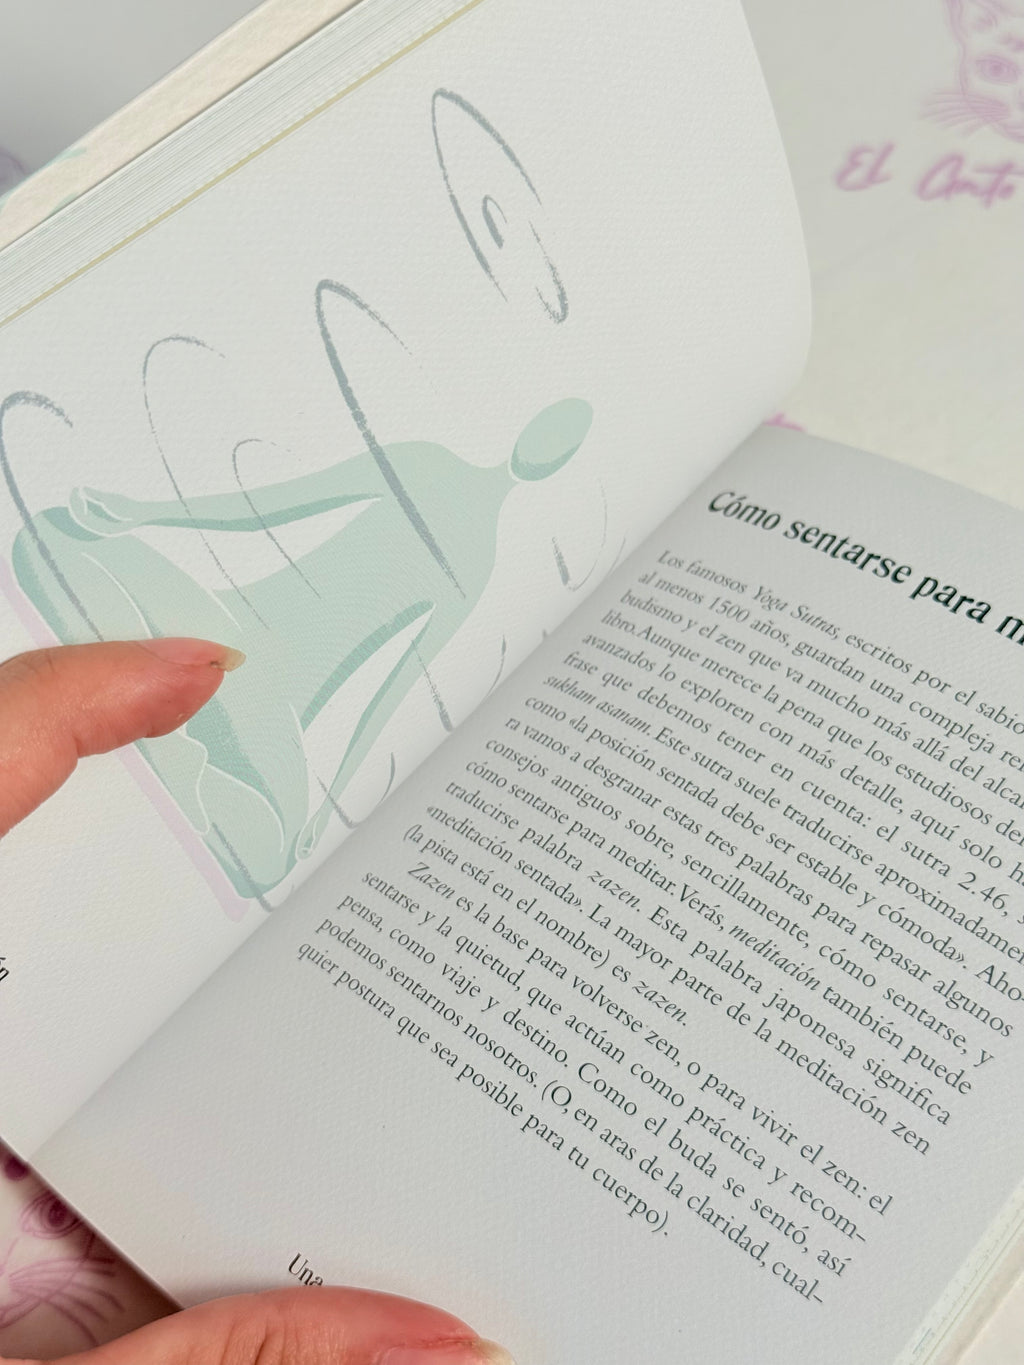 El Canto
Cómo sentarse para
Los famosos Yoga Sutras, escritos por el sabio
al menos 1500 años, guardan una compleja
budismo y el zen que va mucho más allá del
libro. Aunque merece la pena que los estudiosos
avanzados lo exploren con más detalle, aquí solo
frase que debemos tener en cuenta: el sutra 2.46,
sukham asanam. Este sutra suele traducirse
como «la posición sentada debe ser estable y cómoda». Aho-
ra vamos a desgranar estas tres palabras para repasar algunos
consejos antiguos sobre, sencillamente, cómo sentarse, y
cómo sentarse para meditar. Verás, meditación también puede
traducirse palabra zazen. Esta palabra japonesa significa
«meditación sentada». La mayor parte de la meditación zen
(la pista está en el nombre) es zazen.
Zazen es la base para volverse zen, o para vivir el zen: el
sentarse y la quietud, que actúan como práctica y recom-
pensa, como viaje y destino. Como el buda se sentó, así
podemos sentarnos nosotros. (O, en aras de la claridad, cual-
quier postura que sea posible para tu cuerpo).
Una